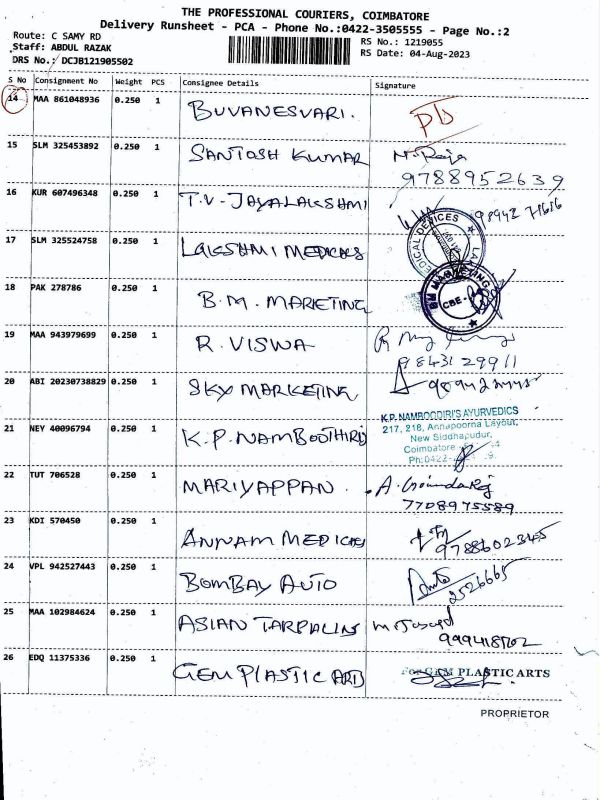 THE PROFESSIONAL COURIERS, COIMBATORE
Delivery Runsheet - PCA - Phone No.:0422-3505555 - Page No.:2
Route: C SAMY RD
Staff: ABDUL RAZAK
DRS No.: DCJB121905502
RS No.: 1219055
RS Date: 04-Aug-2023
S No Consignment No Weight PCS Consignee Details Signature
14 MAA 861048936 0.250 1 BUVANESVARI. PD
15 SLM 325453892 0.250 1 SANTOSH KUMAR
9788952639
16 KUR 607496348 0.250 1 T.V - JAYALAKSHMI
17 SLM 325524758 0.250 1 LAKSHMI MEDICALS MEDICAL DEVICES
18 PAK 278786 0.250 1 B.M. MARKETING BM MARKETING CBE
19 MAA 943979699 0.250 1 R. VISWA
9843129911
20 ABI 20230738829 0.250 1 SKY MARKETING
21 NEY 40096794 0.250 1 K.P. NAMBOOTHIRIS K.P. NAMBOODIRI'S AYURVEDICS
217, 218, Annapoorna Layout,
New Siddhapudur,
Coimbatore
Ph:0422-
22 TUT 706528 0.250 1 MARIYAPPAN. A.
7708975589
23 KDI 570450 0.250 1 ANNAM MEDICALS
9788602345
24 VPL 942527443 0.250 1 BOMBAY AUTO
2526665
25 MAA 102984624 0.250 1 ASIAN TARPALINS
26 EDQ 11375336 0.250 1 GEM PLASTIC ARTS For GEM PLASTIC ARTS
PROPRIETOR